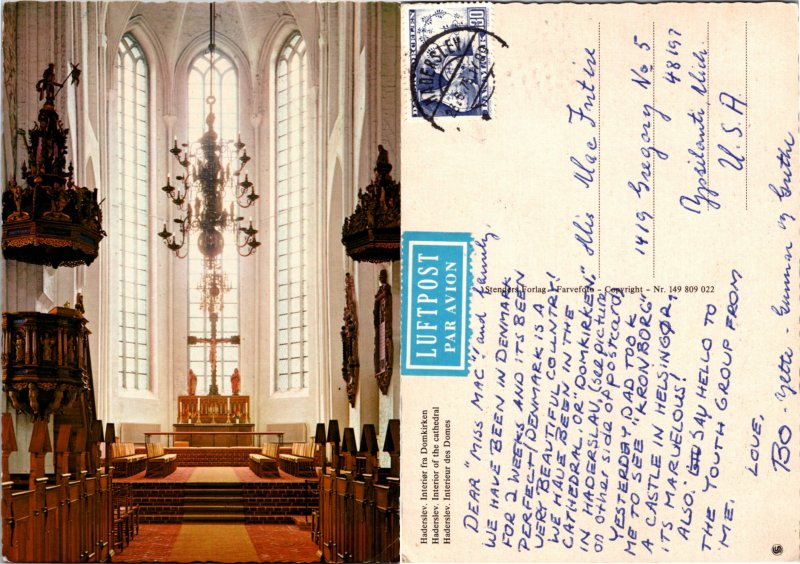 Haderslev. Interiør fra Domkirken
Haderslev. Interior of the cathedral
Haderslev. Interieur des Domes
LUFTPOST
PAR AVION
Stenders Forlag - Farvefoto - Copyright - Nr. 149 809 022
30
HADERSLEV
DEAR "MISS MAC"! and family,
WE HAVE BEEN IN DENMARK
FOR 2 WEEKS AND ITS BEEN
PERFECT! DENMARK IS A
VERY BEAUTIFUL COUNTRY!
WE HAVE BEEN IN THE
CATHEDRAL, OR "DOMKIRKEN,"
IN HADERSLAV, (see picture
on other side of postcard)
YESTERDAY DAD TOOK
ME TO SEE "KRONBORG"
A CASTLE IN HELSINGØR,
ITS MARVELOUS!
ALSO, SAY HELLO TO
THE YOUTH GROUP FROM
ME.
LOVE,
BO - Zette - Gunnar og Grethe
Mis Mac Intire
1419 Gregory No 5
Ypsilanti Mich 48197
U.S.A